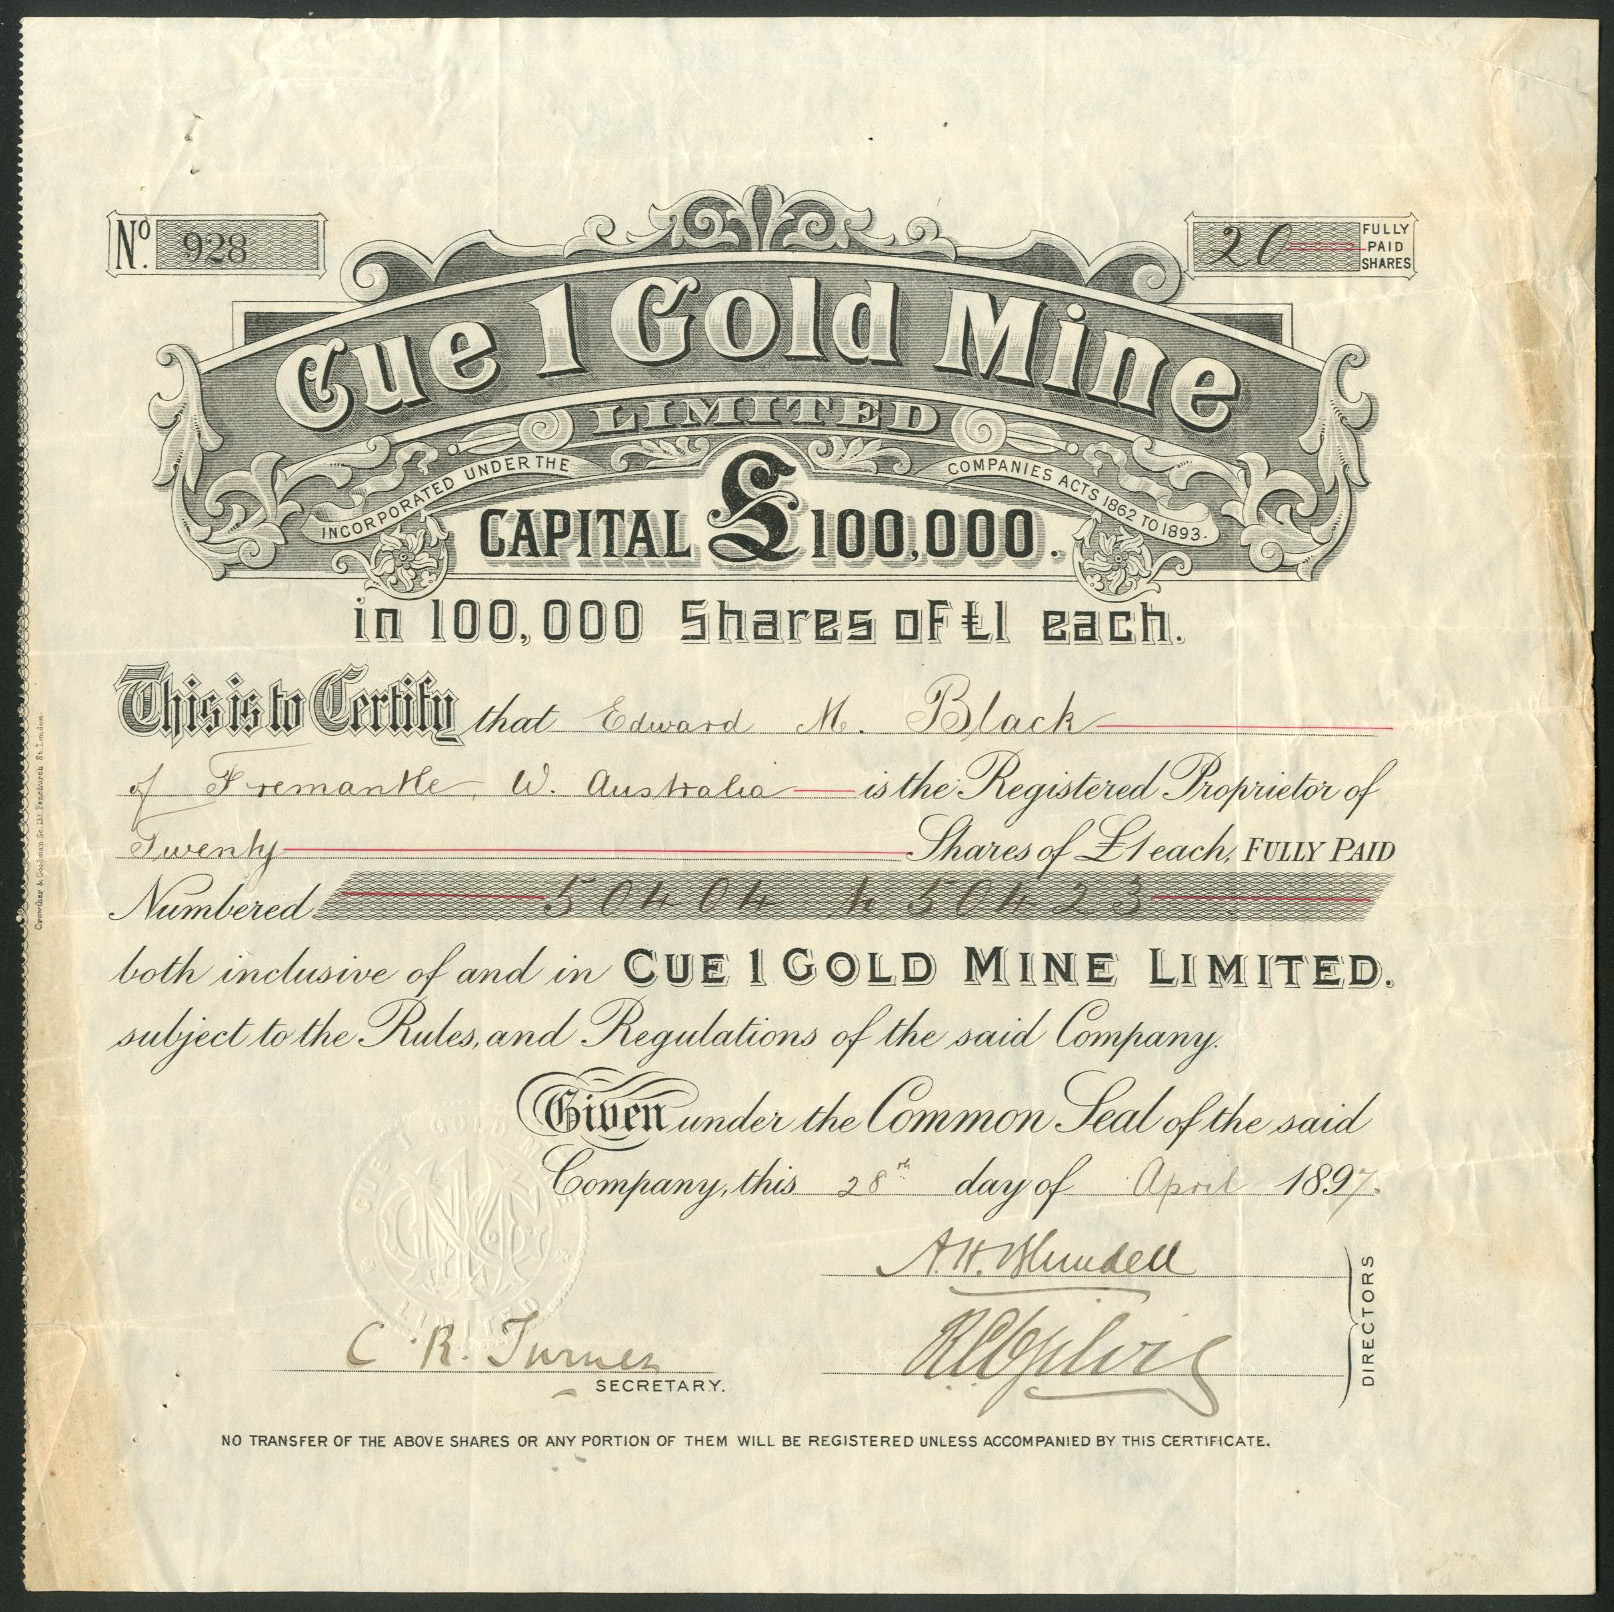 No. 928
20 FULLY PAID SHARES
Cue 1 Gold Mine
LIMITED
INCORPORATED UNDER THE COMPANIES ACTS 1862 TO 1893.
CAPITAL £100,000.
in 100,000 Shares of £1 each.
This is to Certify that Edward M. Black
of Fremantle W. Australia is the Registered Proprietor of
Twenty Shares of £1 each, FULLY PAID
Numbered 50404 to 50423
both inclusive of and in CUE 1 GOLD MINE LIMITED.
subject to the Rules, and Regulations of the said Company.
Given under the Common Seal of the said
Company, this 28th day of April 1897.
A. H. Blundell
R C Ogilvie
DIRECTORS
C. R. Turner
SECRETARY.
NO TRANSFER OF THE ABOVE SHARES OR ANY PORTION OF THEM WILL BE REGISTERED UNLESS ACCOMPANIED BY THIS CERTIFICATE.
Crowther & Goodman Sc. 133 Fenchurch St. London.